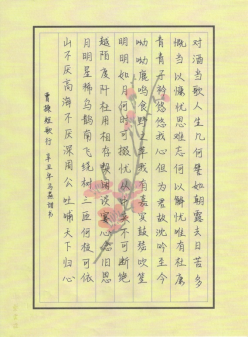 对酒当歌人生几何譬如朝露去日苦多
慨当以慷忧思难忘何以解忧唯有杜康
青青子衿悠悠我心但为君故沈吟至今
呦呦鹿鸣食野之苹我有嘉宾鼓瑟吹笙
明明如月何时可掇忧从中来不可断绝
越陌度阡枉用相存契阔谈宴心念旧恩
月明星稀乌鹊南飞绕树三匝何枝可依
山不厌高海不厌深周公吐哺天下归心
曹操短歌行 辛丑年 书